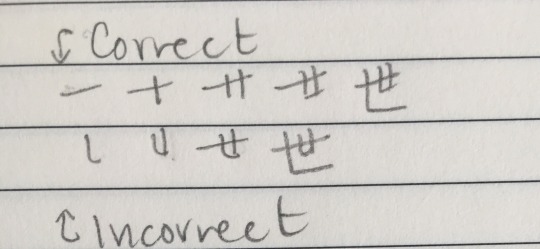 ↓ Correct
一 十 卄 丗 世
世
↑ Incorrect